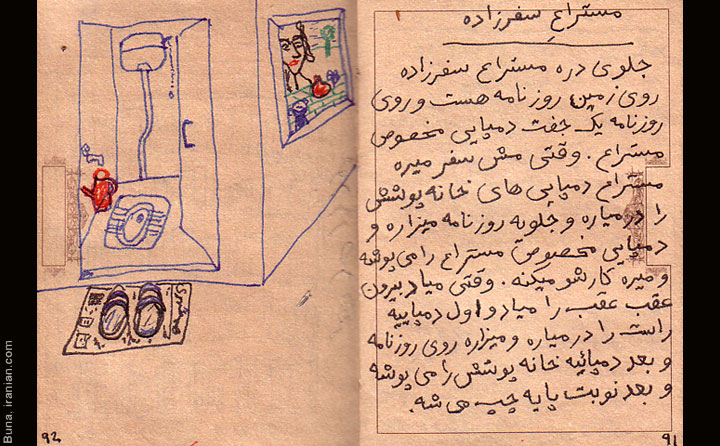 مستراحِ سفرزاده
جلوی دره مستراحِ سفرزاده
روی زمین روزنامه هست و روی
روزنامه یک جفت دمپایی مخصوصِ
مستراح. وقتی مش سفر میره
مستراح دمپایی های خانه پوشش
را درمیاره و جلویه روزنامه میزاره و
دمپایی مخصوصِ مستراح را می پوشه
و میره کارشو میکنه. وقتی میاد بیرون
عقب عقب را میاد و اول دمپاییه
راست را درمیاره و میزاره روی روزنامه
و بعد دمپائیه خانه پوشش را می پوشه
و بعد نوبت پایه چپ می شه.
۹۱
۹۲
Buna, iranian.com